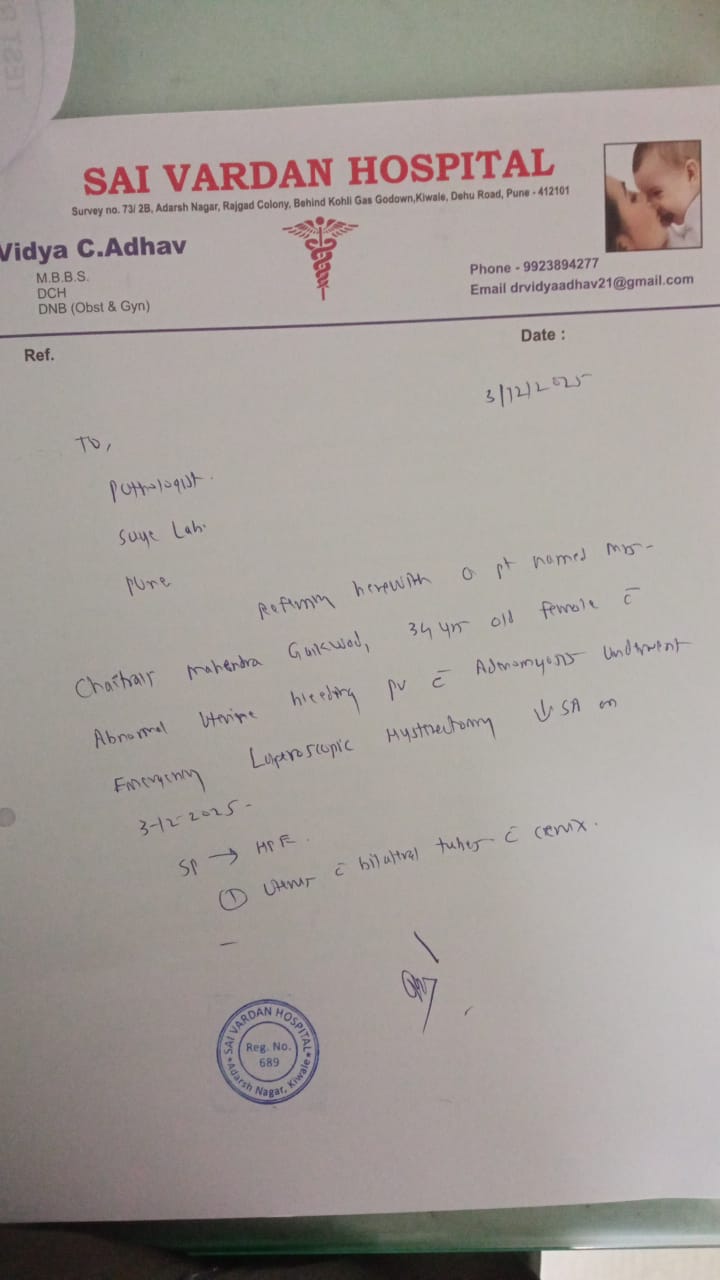 SAI VARDAN HOSPITAL
Survey no. 73/ 2B, Adarsh Nagar, Rajgad Colony, Behind Kohli Gas Godown,Kiwale, Dehu Road, Pune - 412101
Vidya C.Adhav
M.B.B.S.
DCH
DNB (Obst & Gyn)
Phone - 9923894277
Email drvidyaadhav21@gmail.com
Ref.
Date :
3/12/2025
To,
Pathologist.
Lab.
Pune
herewith a pt named
Mahendra Gaikwad, 34 yrs old female c̄
Abnormal Uterine bleeding pv c̄ Adenomyosis Underwent
Emergency Laparoscopic Hysterectomy ↓ SA on
3-12-2025-
→ HPE.
① Uterus c̄ bilatral tubes c̄ cervix.
SAI VARDAN HOSPITAL
Reg. No.
689
Adarsh Nagar, Kiwale